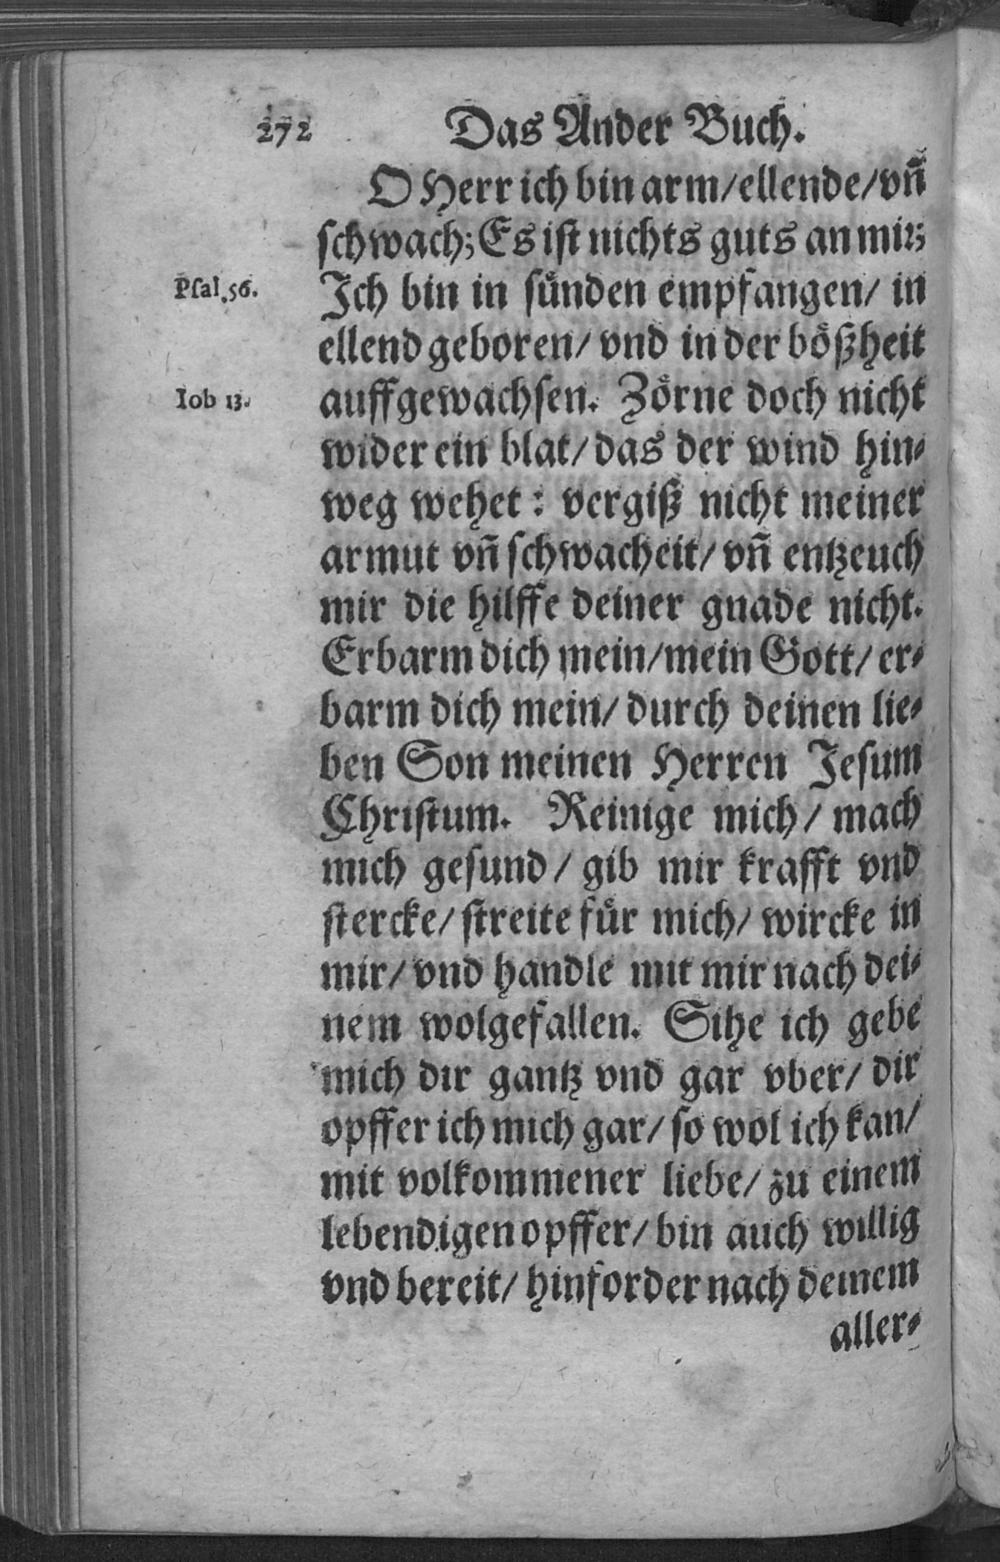 272 Das Ander Buch.
O Herr ich bin arm/ellende/vñ
schwach; Es ist nichts guts an mir;
Psal.56. Ich bin in sünden empfangen/ in
ellend geboren/ vnd in der bößheit
Iob 13. auffgewachsen. Zörne doch nicht
wider ein blat/ das der wind hin⸗
weg wehet: vergiß nicht meiner
armut vñ schwacheit/ vñ entzeuch
mir die hilffe deiner gnade nicht.
Erbarm dich mein/mein Gott/ er⸗
barm dich mein/ durch deinen lie⸗
ben Son meinen Herren Jesum
Christum. Reinige mich/ mach
mich gesund/ gib mir krafft vnd
stercke/ streite für mich/ wircke in
mir/ vnd handle mit mir nach dei⸗
nem wolgefallen. Sihe ich gebe
mich dir gantz vnd gar vber/ dir
opffer ich mich gar/ so wol ich kan/
mit volkommener liebe/ zu einem
lebendigen opffer/ bin auch willig
vnd bereit/ hinforder nach deinem
aller⸗